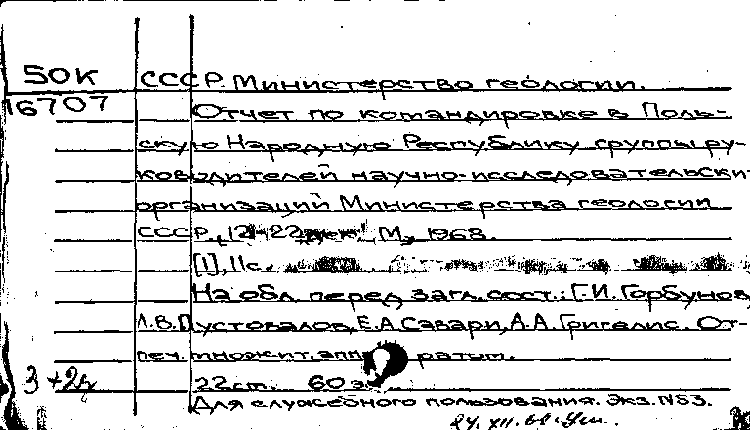 50К
СССР. Министерство геологии.
16707
Отчет по командировке в Поль-
скую Народную Республику группы ру-
ководителей научно-исследовательски
организаций Министерства геологии
СССР, 12-22 М., 1968.
[1], 11с.
На обл. перед загл. сост.: Г.И. Горбунов,
Л.В. Пустовалов, Е.А. Савари, А.А. Григелис. От-
печ. множит. аппаратом.
3 +2
22см. 60 э
Для служебного пользования. Экз. №53.
24. XII. 68.